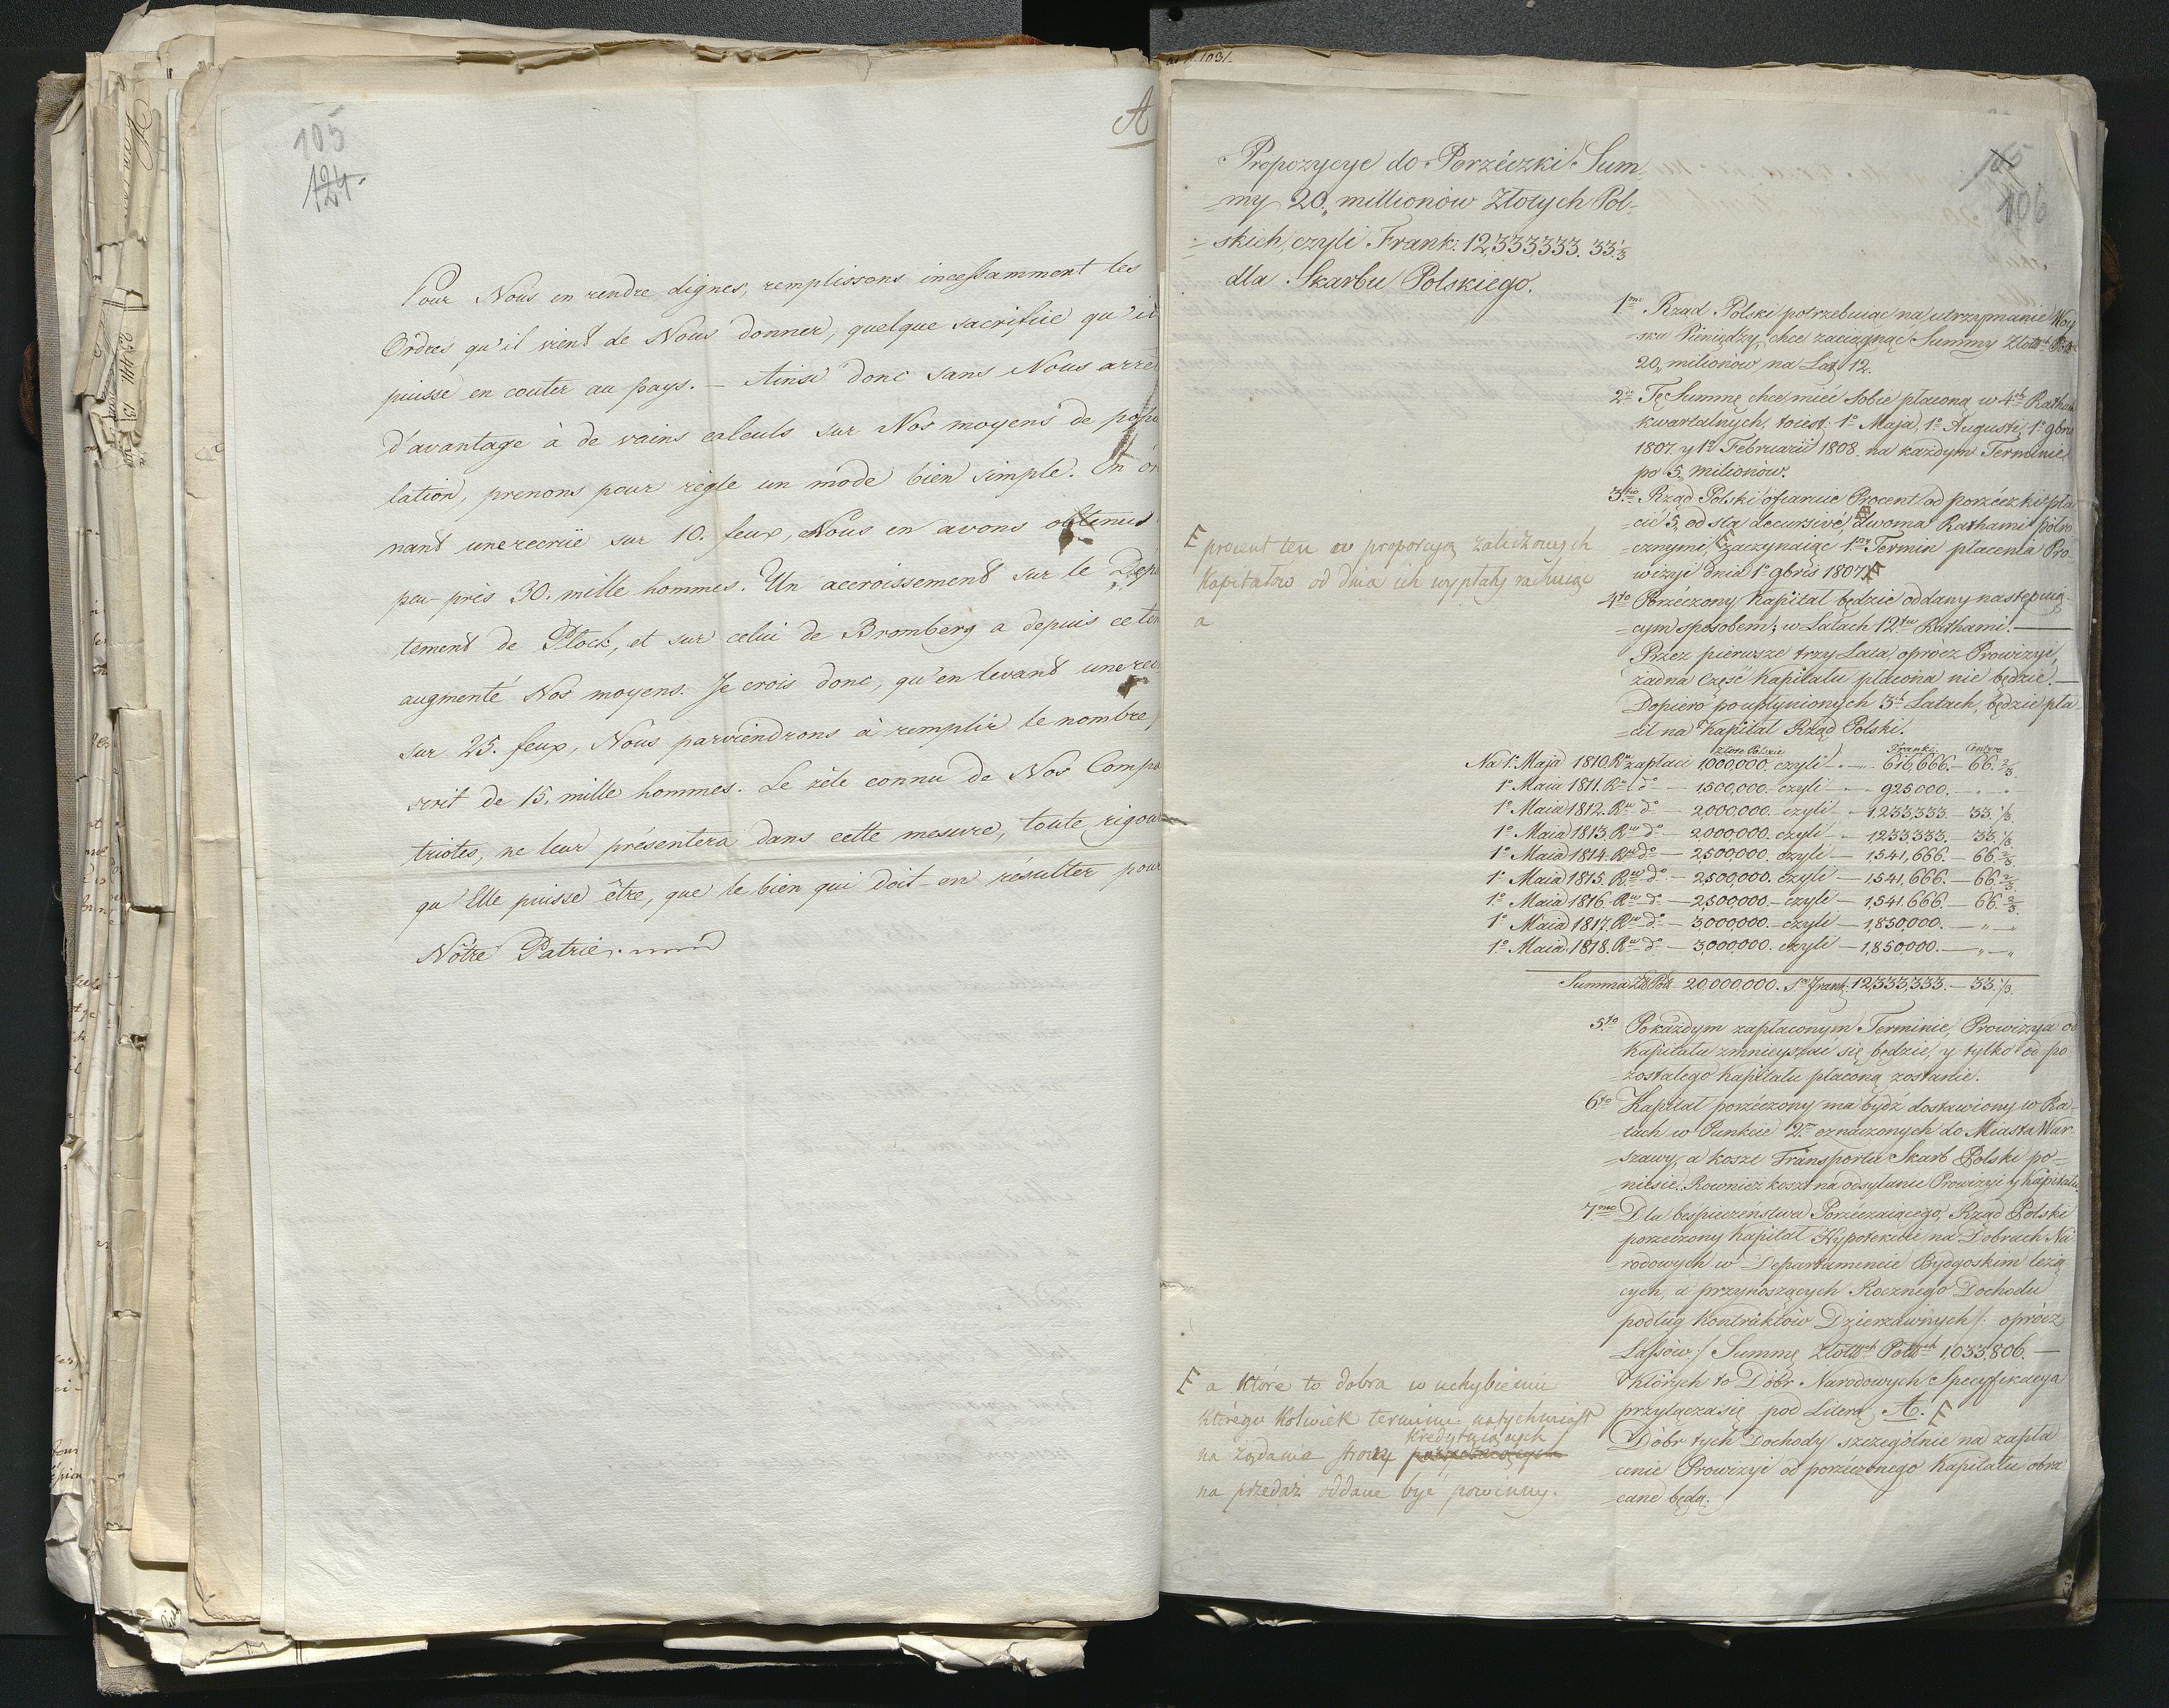 105
124.
A
Pour Nous en rendre dignes, remplissons incessamment les
Ordres qu'il vient de Nous donner, quelque sacrifice qu'il
puisse en couter au pays. — Ainsi donc sans Nous arrê
d'avantage à de vains calculs sur Nos moyens de popu
lation, prenons pour règle un mode bien simple. En or
nant une recrüe sur 10. feux, Nous en avons obtenus
peu-près 30. mille hommes. Un accroissement sur le Dépa
tement de Plock, et sur celui de Bromberg a depuis ce tem
augmenté Nos moyens. Je crois donc, qu'en levant une rec
sur 25. feux, Nous parviendrons à remplir le nombre
scrit de 15. mille hommes. Le zèle connu de Nos Compa
triotes, ne leur présentera dans cette mesure, toute rigou
qu'Elle puisse être, que le bien qui doit en résulter pour
Nôtre Patrie.
ad N. 1031.
105
106
Propozycye do Porzéczki Sum-
=my 20,, millionów Złotych Pol-
=skich, czyli Frank: 12,333,333. 33.⅓
dla Skarbu Polskiego.
1mo Rząd Polski potrzebuiąc na utrzymanie Woy
=ska Pieniędzy, chce zaciągnąć Summy Złotch Polch
20,, milionów na Lat 12.
2do Tę Summę chce mieć sobie płaconą w 4ch Rathach
kwartalnych, toiest: 1o Maja, 1o Augusti, 1o 9bris
1807. y 1o Februarii 1808. na każdym Terminie
po 5,, milionów.
3tio Rząd Polski ofiaruie Procent od porzéczki pła
=cić 5,, od sta decursivé, dwoma Rathami półro
=cznymi, zaczynaiąc 1szy Termin płacenia Pro-
wizyi dnia 1o 9bris 1807.
F procent ten w proporcyą zaliczonych
Kapitałow od dnia ich wypłaty rachuiąc
a
4to Porzéczony Kapitał będzie oddany nastepuią
=cym sposobem; w Latach 12tu Rathami. —
Przez pierwsze trzy Lata, oprócz Prowizyi,
żadna część Kapitału płacona nie będzie. —
Dopiero po upłynionych 3ch Latach, będzie pła
=cił na Kapitał Rząd Polski.
Złote Polskie Franki Centima
Na 1o Maja 1810. Ru zapłaci 1,000,000. czyli — 616,666. — 66.⅔
1o Maia 1811. Ru do — 1,500,000. — czyli — 925,000. — " — "
1o Maia 1812. Ru do — 2,000,000. — czyli — 1,233,333. — 33.⅓
1o Maia 1813. Ru do — 2,000,000. — czyli — 1,233,333. — 33.⅓
1o Maia 1814. Ru do — 2,500,000. — czyli — 1,541,666. — 66.⅔
1o Maia 1815. Ru do — 2,500,000. — czyli — 1,541,666. — 66.⅔
1o Maia 1816. Ru do — 2,500,000. — czyli — 1,541,666. — 66.⅔
1o Maia 1817. Ru do — 3,000,000. — czyli — 1,850,000. — " — "
1o Maia 1818. Ru do — 3,000,000. — czyli — 1,850,000. — " — "
Summa Zł Pol 20,000,000. Sm Frank: 12,333,333. — 33.⅓
5to Po każdym zapłaconym Terminie, Prowizya od
Kapitału zmnieyszać się będzie, y tylko od po
=zostałego Kapitału płaconą zostanie.
6to Kapitał porzéczony ma bydź dostawiony w Ra-
=tach w Punkcie 2m oznaczonych do Miasta War-
=szawy, a koszt Transportu Skarb Polski po=
=niesie. Rownież koszt na odsyłanie Prowizyi y Kapitału.
7mo Dla bespieczeństwa Porzéczaiącego, Rząd Polski
porzéczony Kapitał Hypotekuie na Dobrach Na
=rodowych w Departamencie Bydgoskim leżą
cych, a przynoszących Rocznego Dochodu
podług Kontraktów Dzierżawnych /: oprócz
Lassów :/ Summę Złotch Polch 1,033,806. —
Których to Dóbr Narodowych Specyfikacya
przyłącza się pod Literą A. F
Dóbr tych Dochody szczególnie na zapła
cenie Prowizyi od porzéczonego Kapitału obra
=cane będą.
F a które to dobra w uchybieniu
którego kolwiek terminu natychmiast
na żądanie strony kredytuiących
na przedaż oddane być powinny.